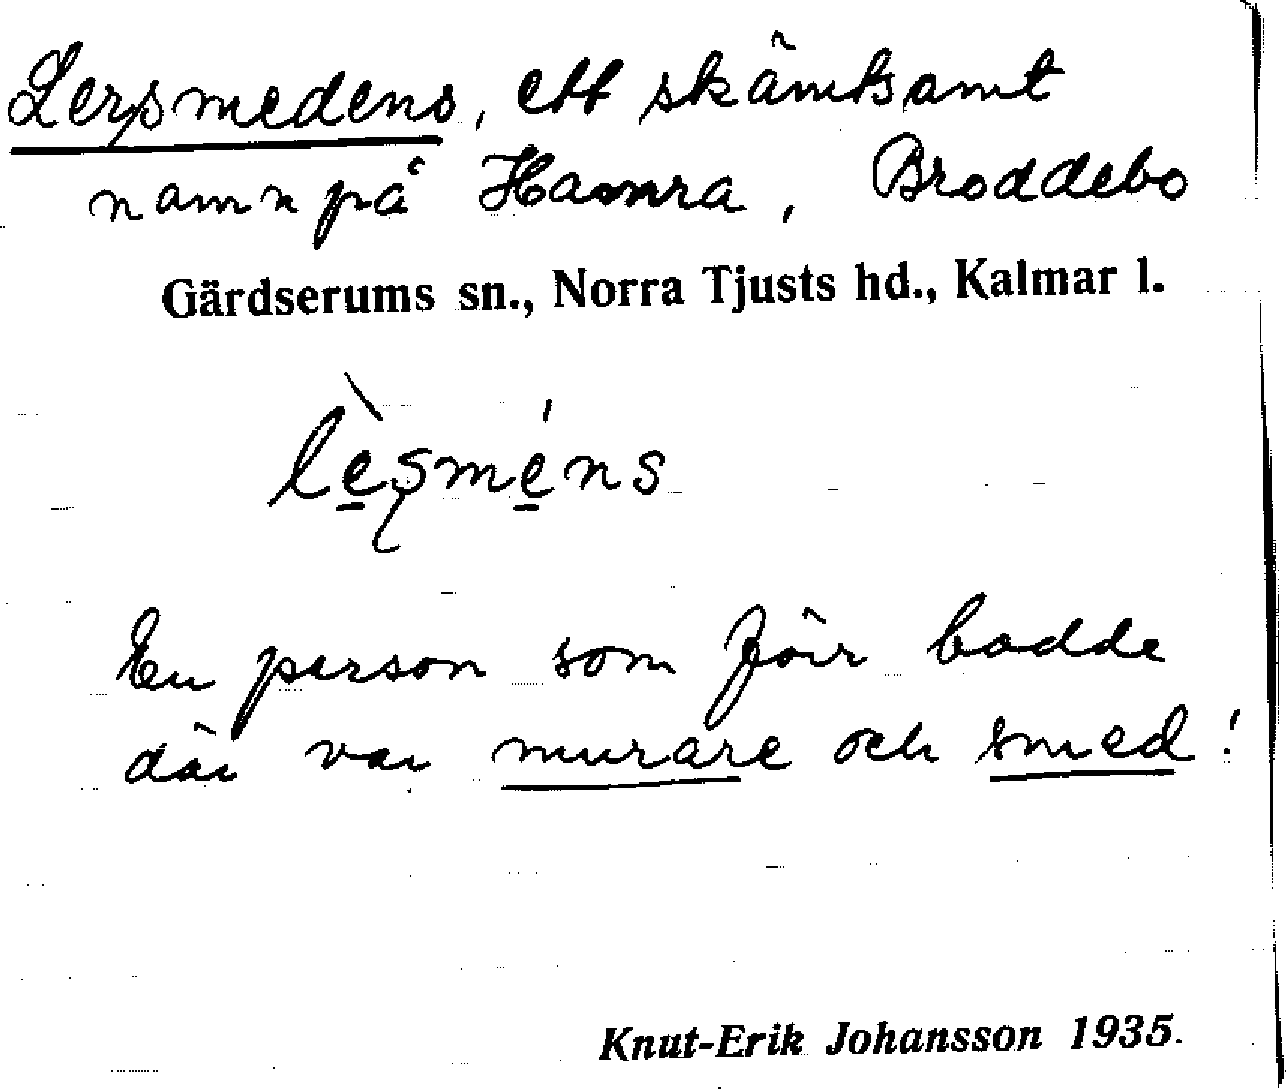 Lersmedens, ett skämtsamt
namn på Hamra, Broddebo
Gärdserums sn., Norra Tjusts hd., Kalmar l.
lèșméns
En person som förr bodde
där var murare och smed!
Knut-Erik Johansson 1935.